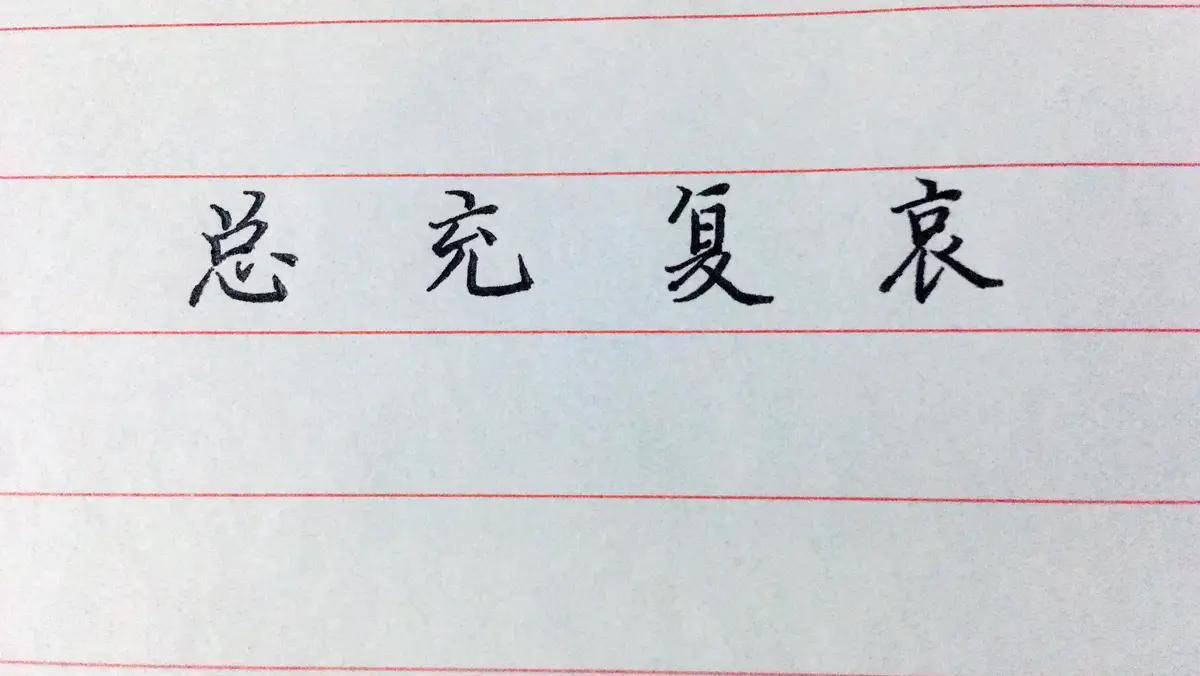 总 充 复 哀